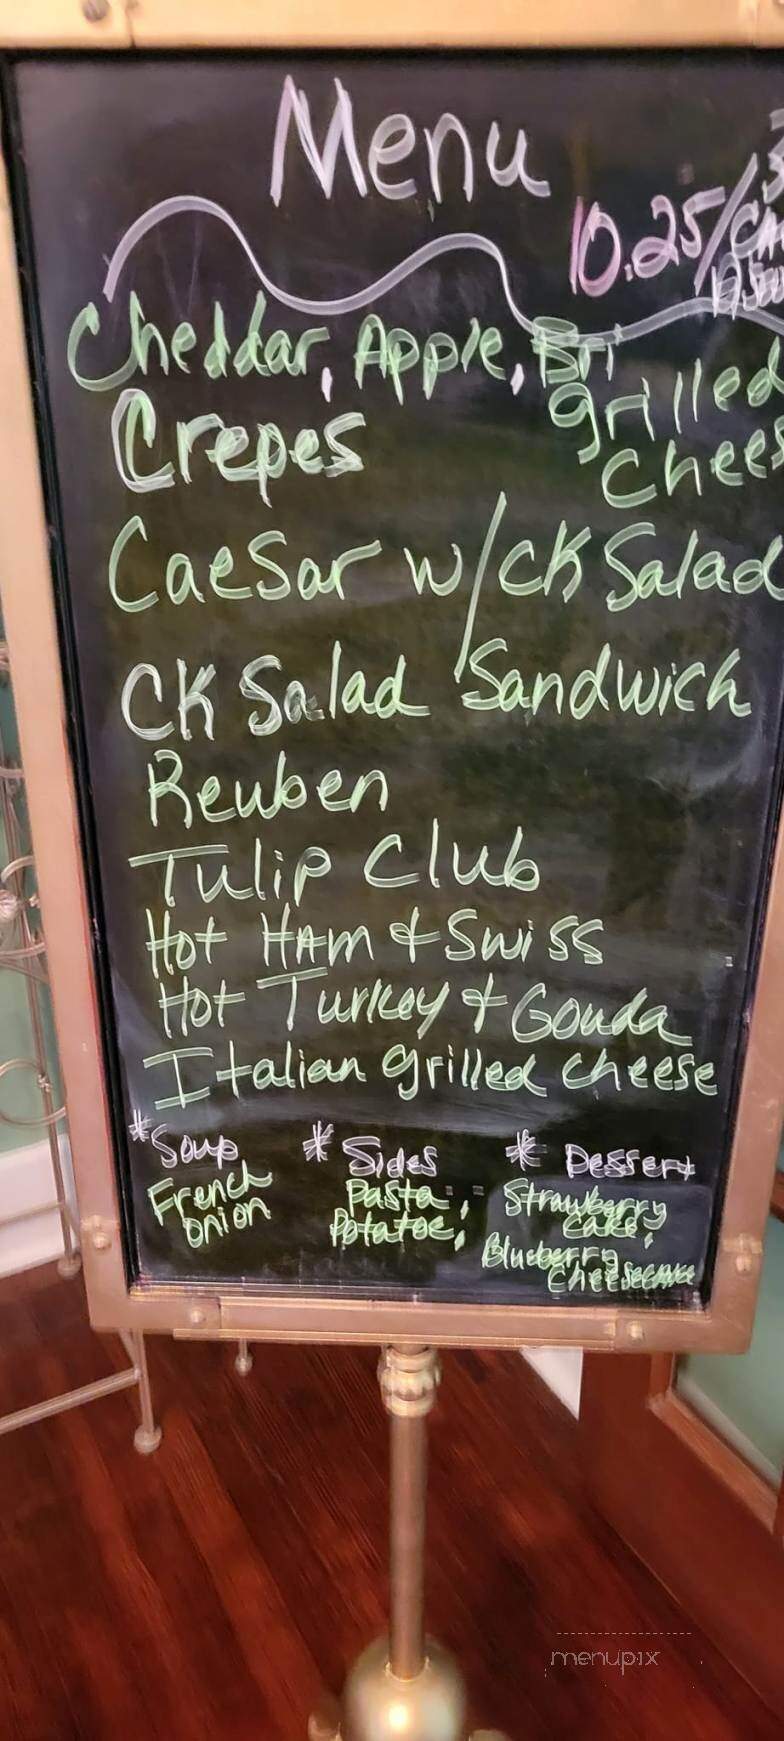 Menu
10.25/
Cheddar, Apple, Bri
grilled
Chees
Crepes
Caesar w/CK Salad
CK Salad Sandwich
Reuben
Tulip Club
Hot HAm & Swiss
Hot Turkey & Gouda
Italian grilled cheese
*Soup
French
onion
* Sides
Pasta,
Potatoe,
* Dessert
Strawberry
Cake,
Blueberry
Cheesecake
menupix